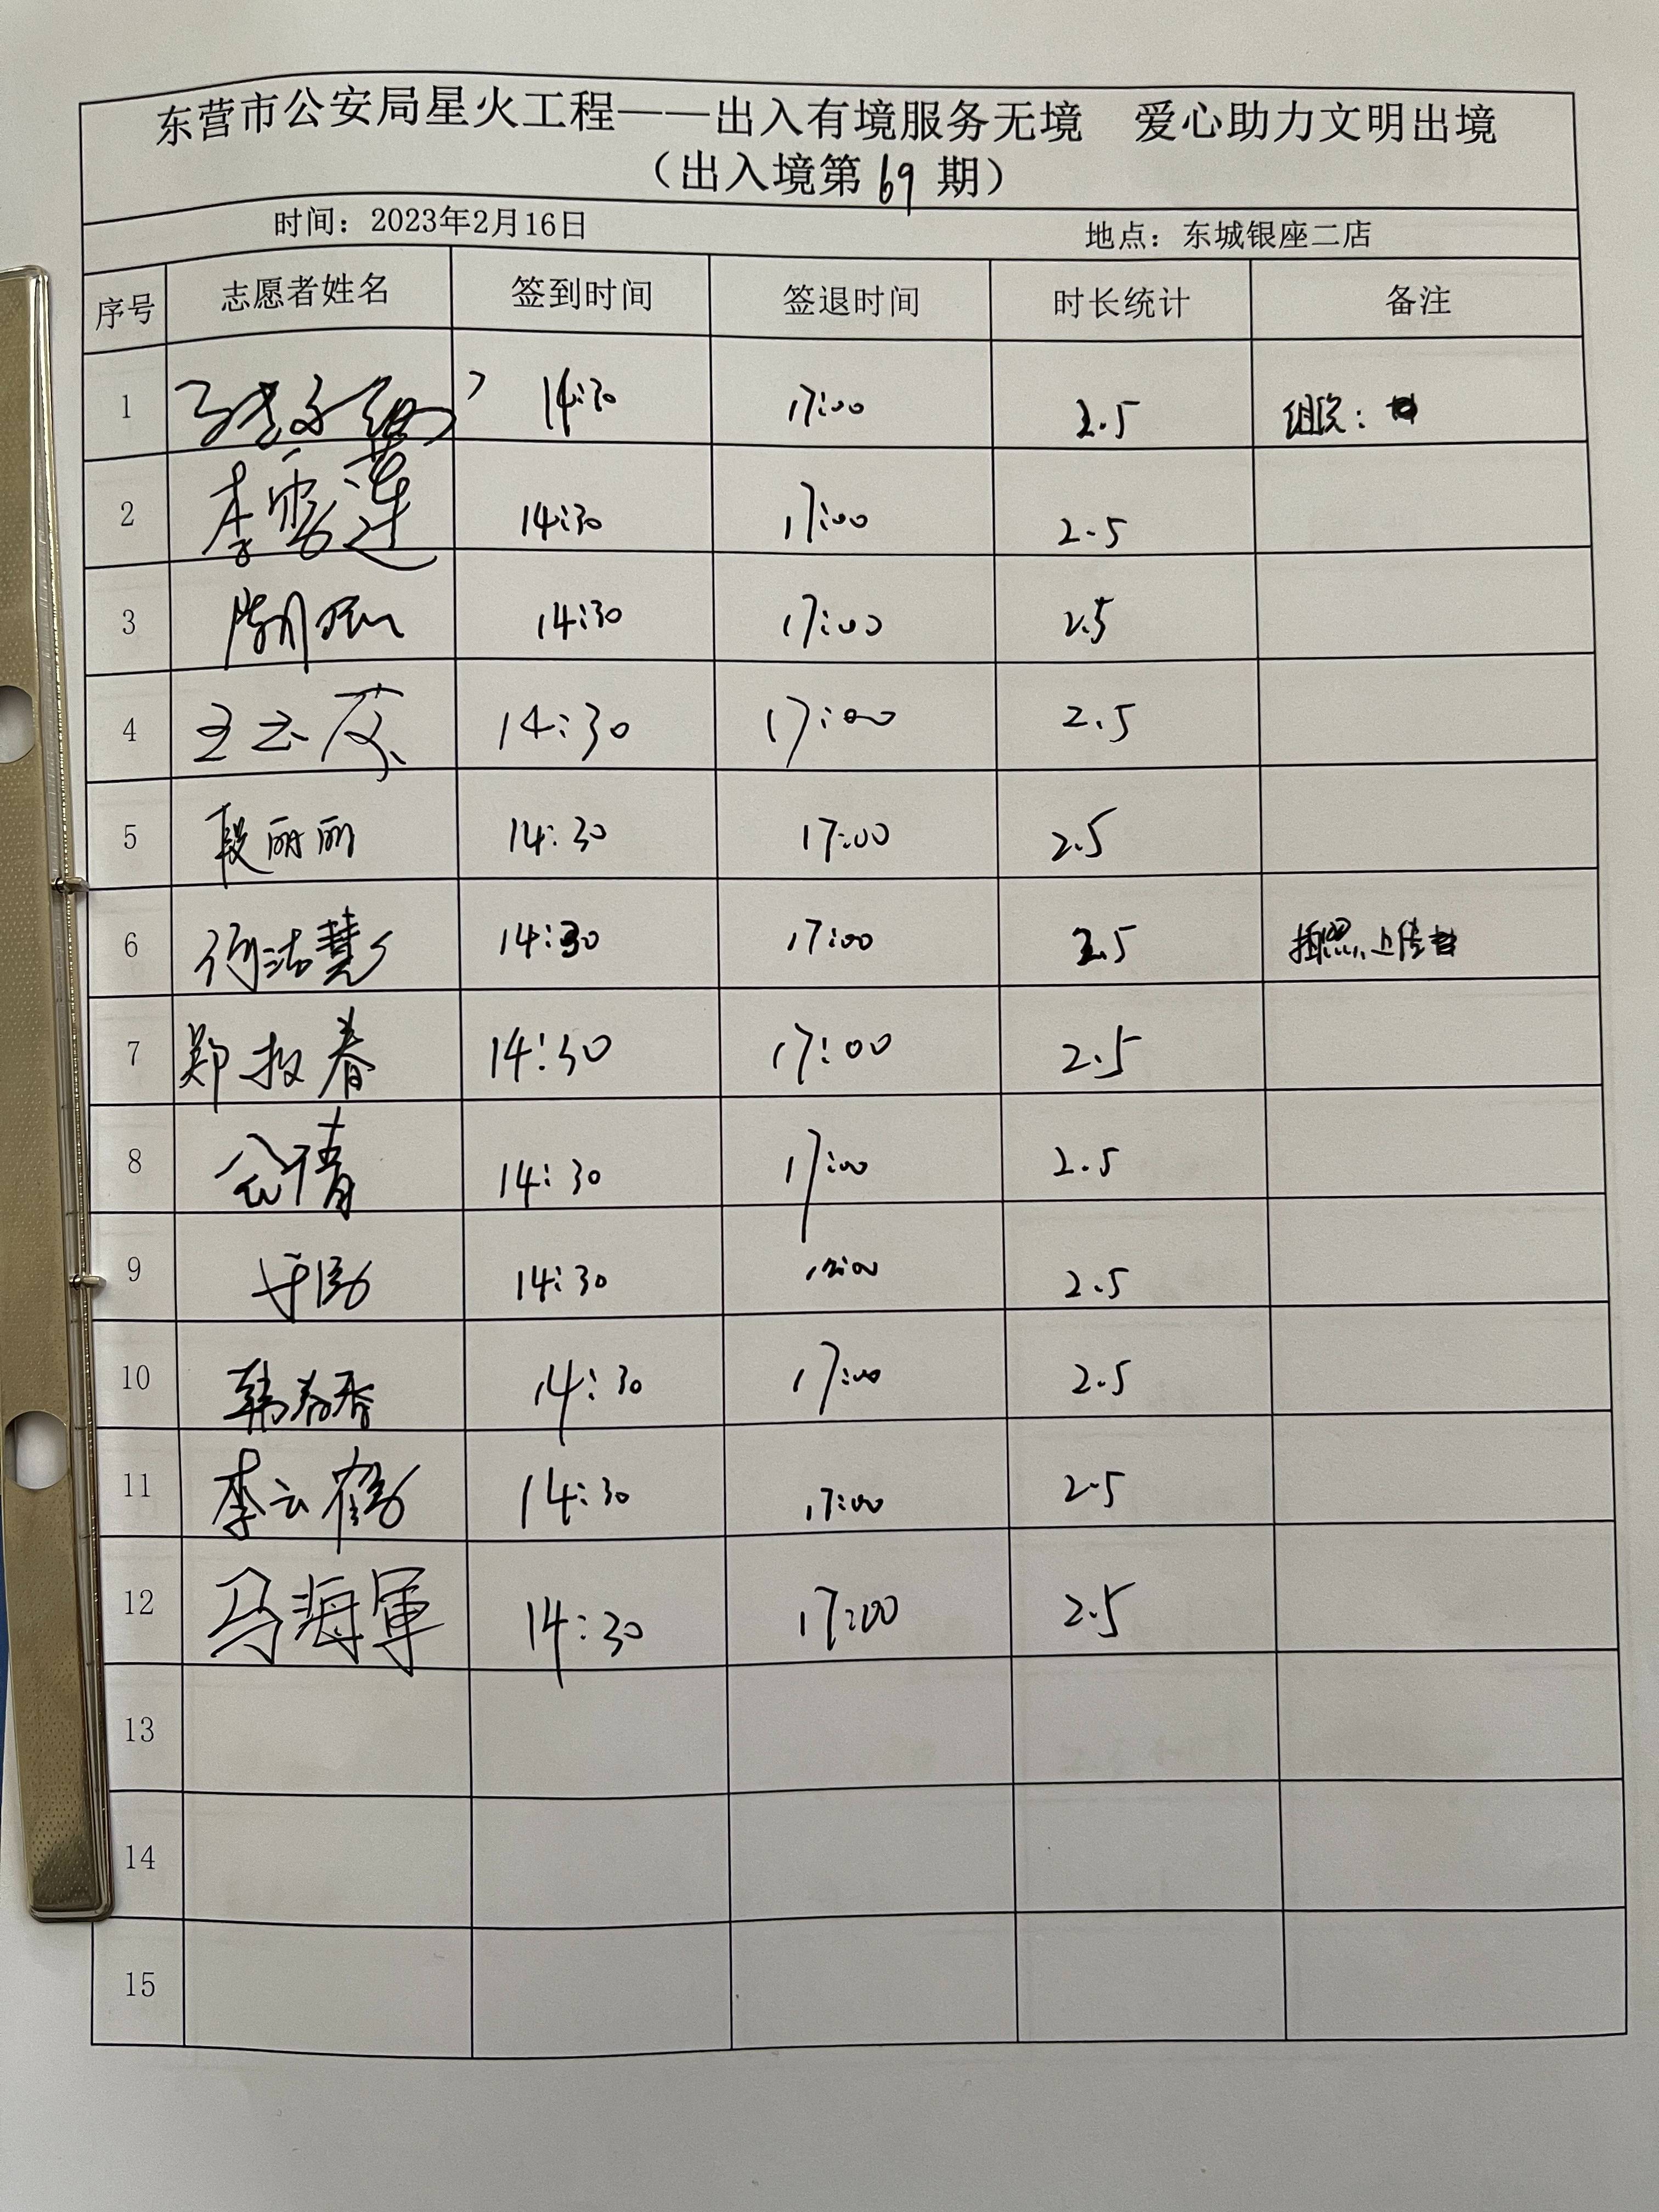 东营市公安局星火工程——出入有境服务无境 爱心助力文明出境
（出入境第69期）
时间：2023年2月16日 地点：东城银座二店
序号 志愿者姓名 签到时间 签退时间 时长统计 备注
1 14:30 17:00 2.5
2 李雪莲 14:30 17:00 2.5
3 14:30 17:00 2.5
4 14:30 17:00 2.5
5 段丽丽 14:30 17:00 2.5
6 何洁慧 14:30 17:00 2.5 拍照上传
7 郑投春 14:30 17:00 2.5
8 14:30 17:00 2.5
9 14:30 2.5
10 韩春香 14:30 17:00 2.5
11 李云鹤 14:30 17:00 2.5
12 马海軍 14:30 17:00 2.5
13
14
15